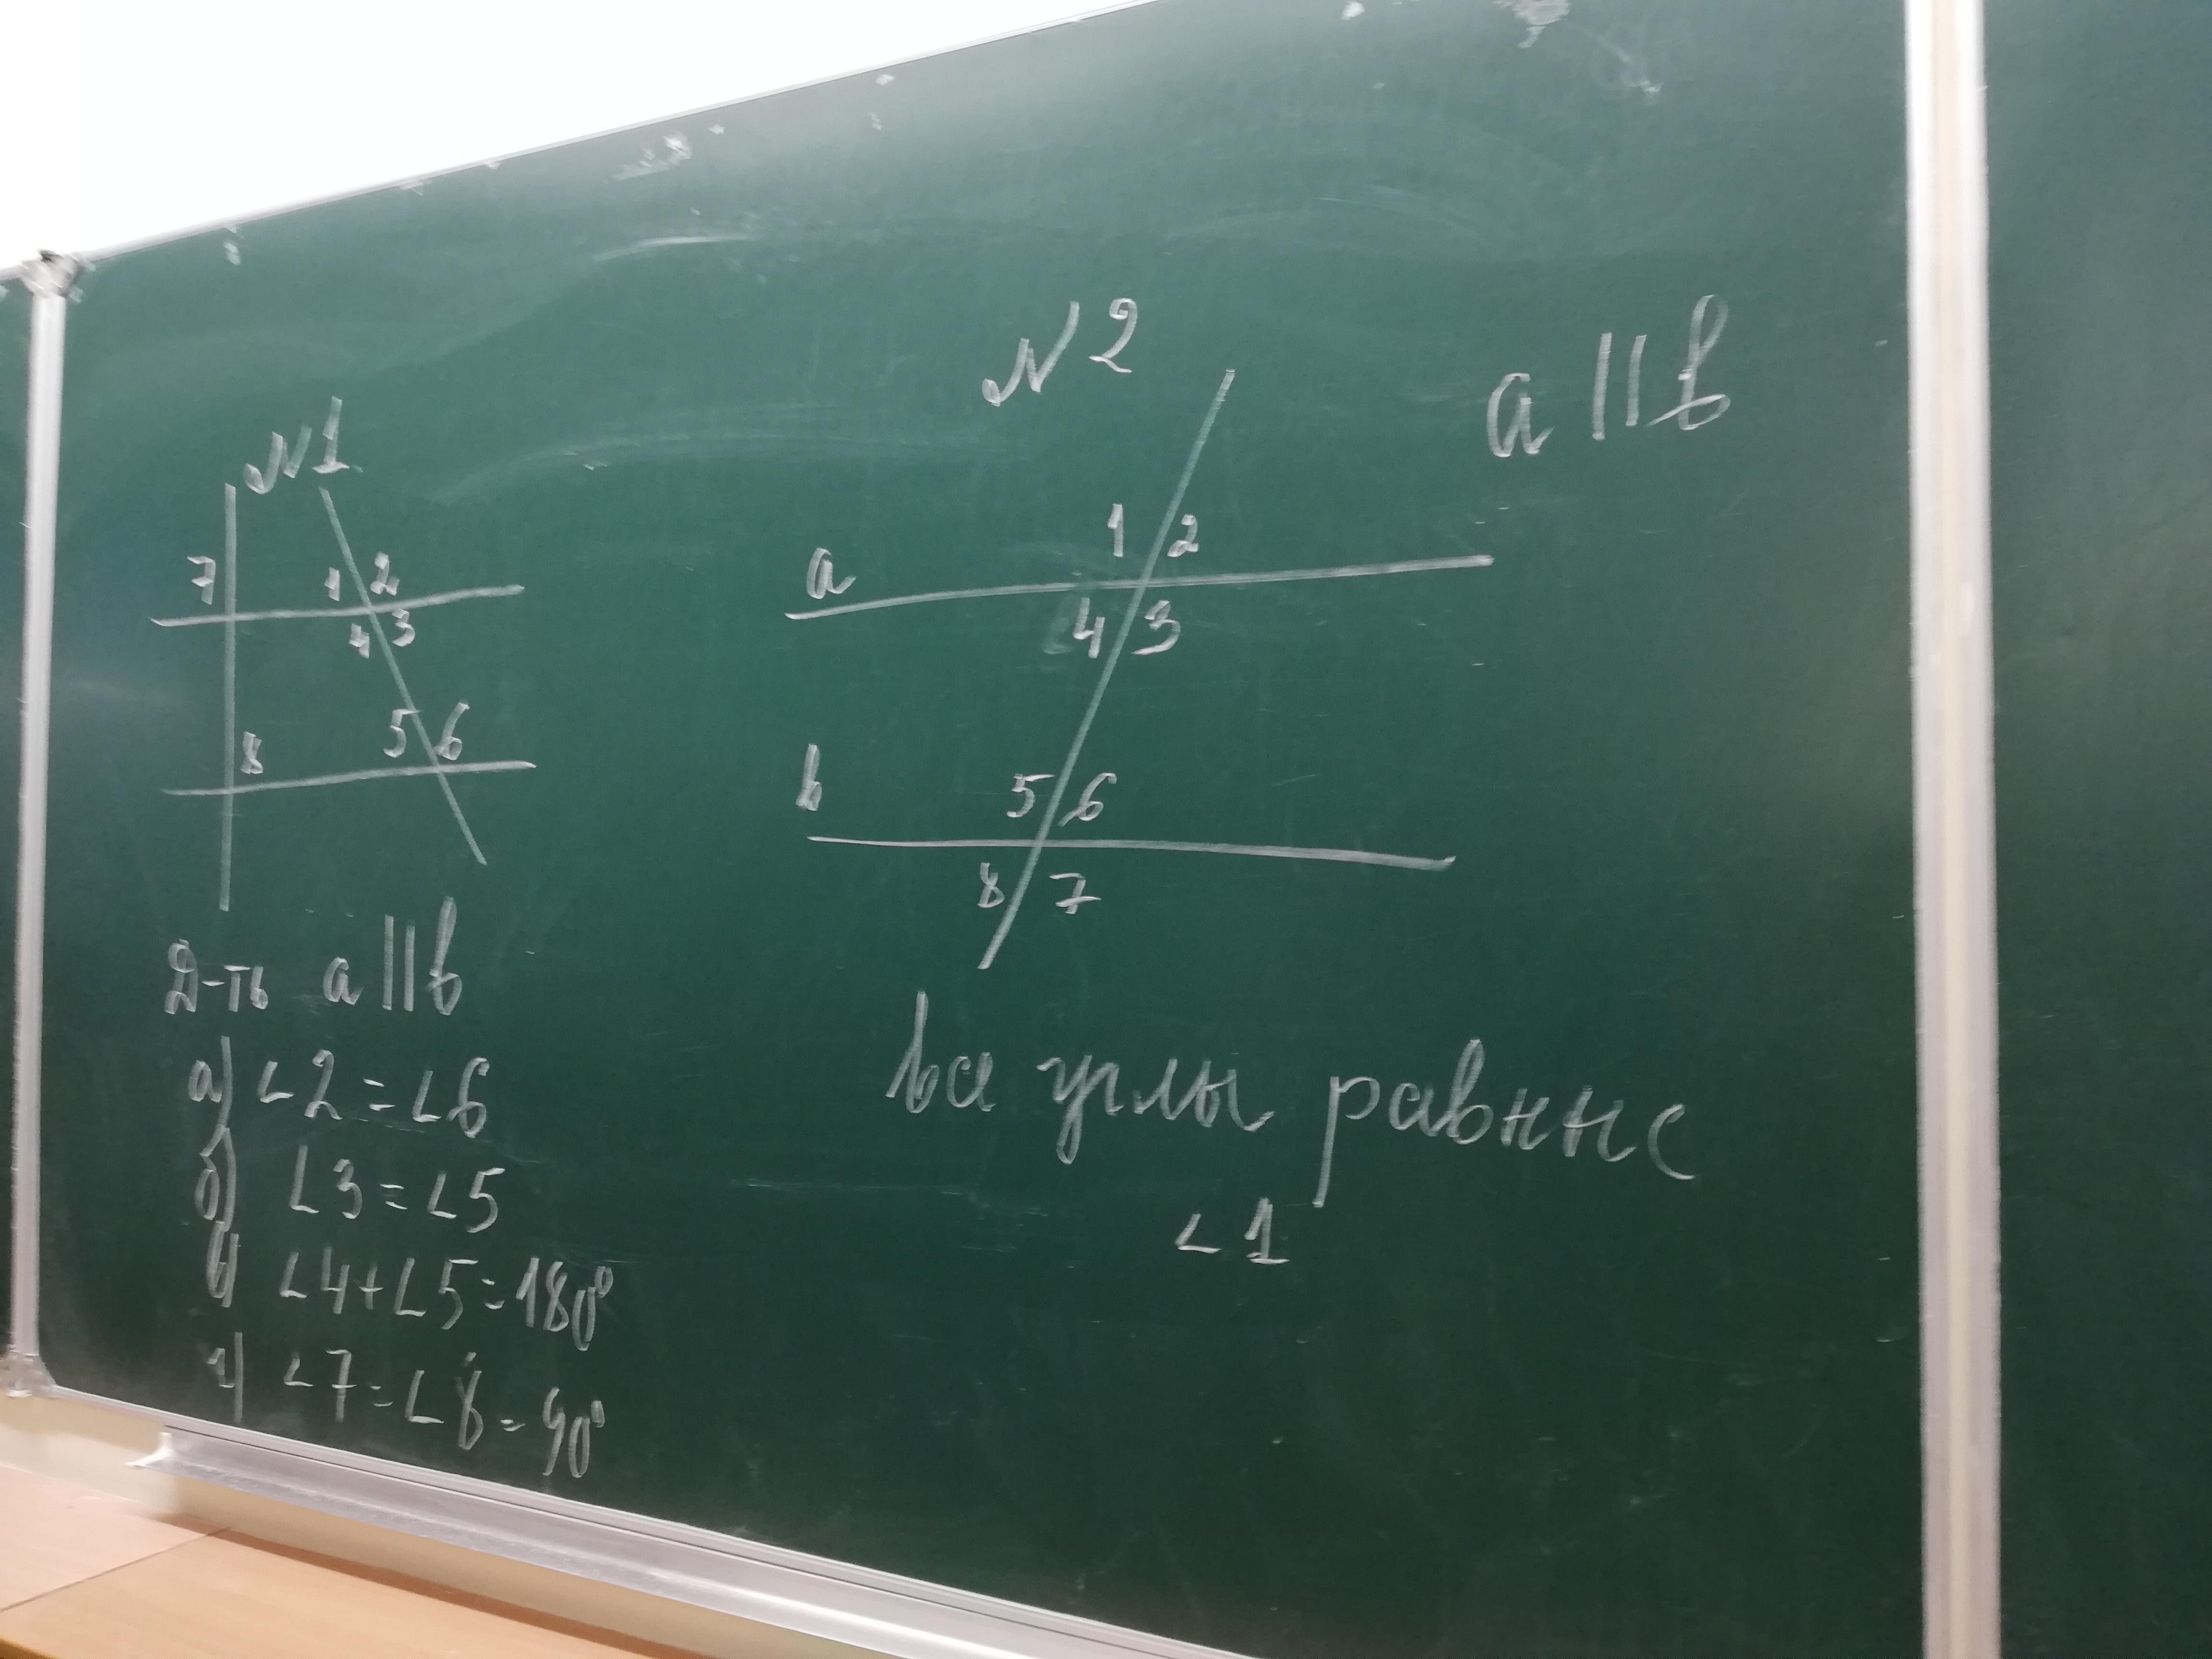 N1
7
1 2
4 3
5 6
8
Д-ть a || b
а) ∠2 = ∠6
б) ∠3 = ∠5
в) ∠4 + ∠5 = 180°
г) ∠7 = ∠8 = 90°
N2
a || b
1 2
a
4 3
b
5 6
8 7
все углы равные
∠1